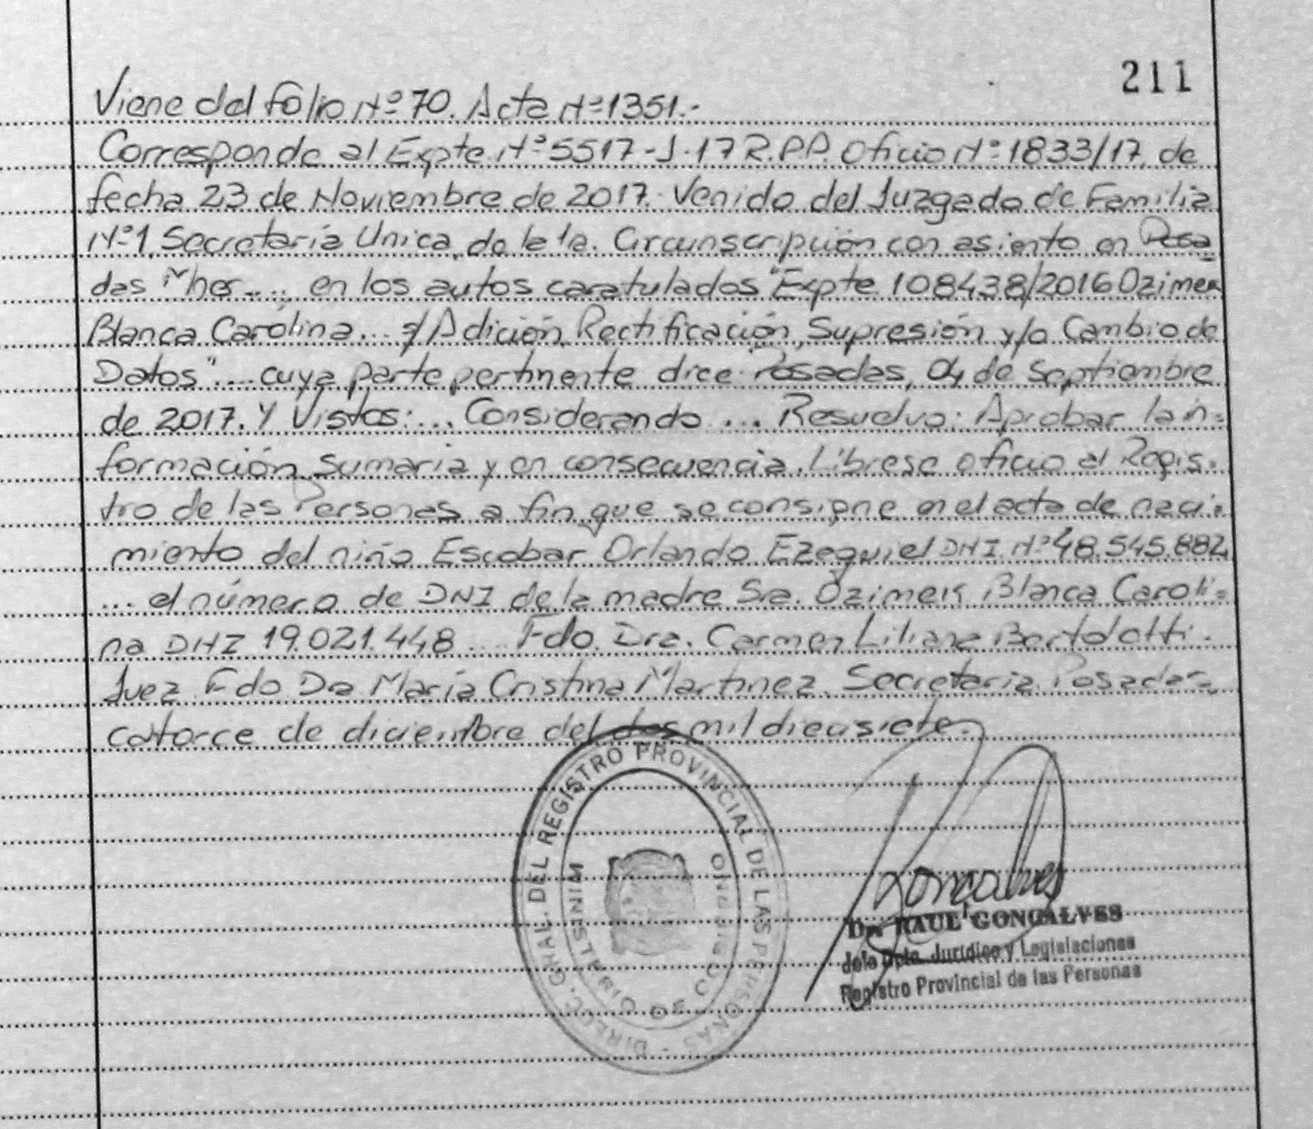 211
Viene del folio Nº 70. Acta Nº 1351.-
Corresponde al Expte Nº 5517-J-17 R.P.P. Oficio Nº 1833/17 de
fecha 23 de Noviembre de 2017. Venido del Juzgado de Familia
Nº 1, Secretaría Unica, de la 1a. Circunscripción con asiento en Posa
das Mnes..., en los autos caratulados "Expte 108438/2016 Ozimek
Blanca Carolina... s/ Adición, Rectificación, Supresión y/o Cambio de
Datos"... cuya parte pertinente dice: Posadas, 04 de Septiembre
de 2017. Y Vistos:... Considerando... Resuelvo: Aprobar la in-
formación sumaria y en consecuencia. Líbrese oficio al Regis-
tro de las Personas a fin que se consigne en el acta de naci-
miento del niño Escobar Orlando Ezequiel DNI. Nº 48.545.882
... el número de DNI de la madre Sra. Ozimek Blanca Caroli-
na DNI 19.021.448... Fdo. Dra. Carmen Liliana Bertolotti.
Juez Fdo Dra María Cristina Martinez Secretaria Posadas
catorce de diciembre del dos mil diecisiete.
DIREC. GRAL. DEL REGISTRO PROVINCIAL DE LAS PERSONAS -
MINISTERIO DE GOBIERNO
Goncalves
Dr. RAUL GONCALVES
Jefe Dpto. Jurídico y Legislaciones
Registro Provincial de las Personas